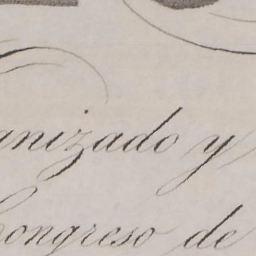 anizado y
Congreso de